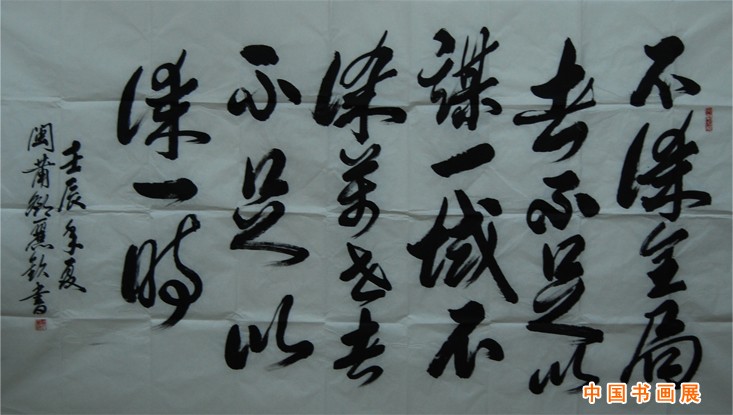 不谋全局
者不足以
谋一域不
谋万世者
不足以
谋一时
壬辰年夏
闽莆郑黑钦书
中国书画展